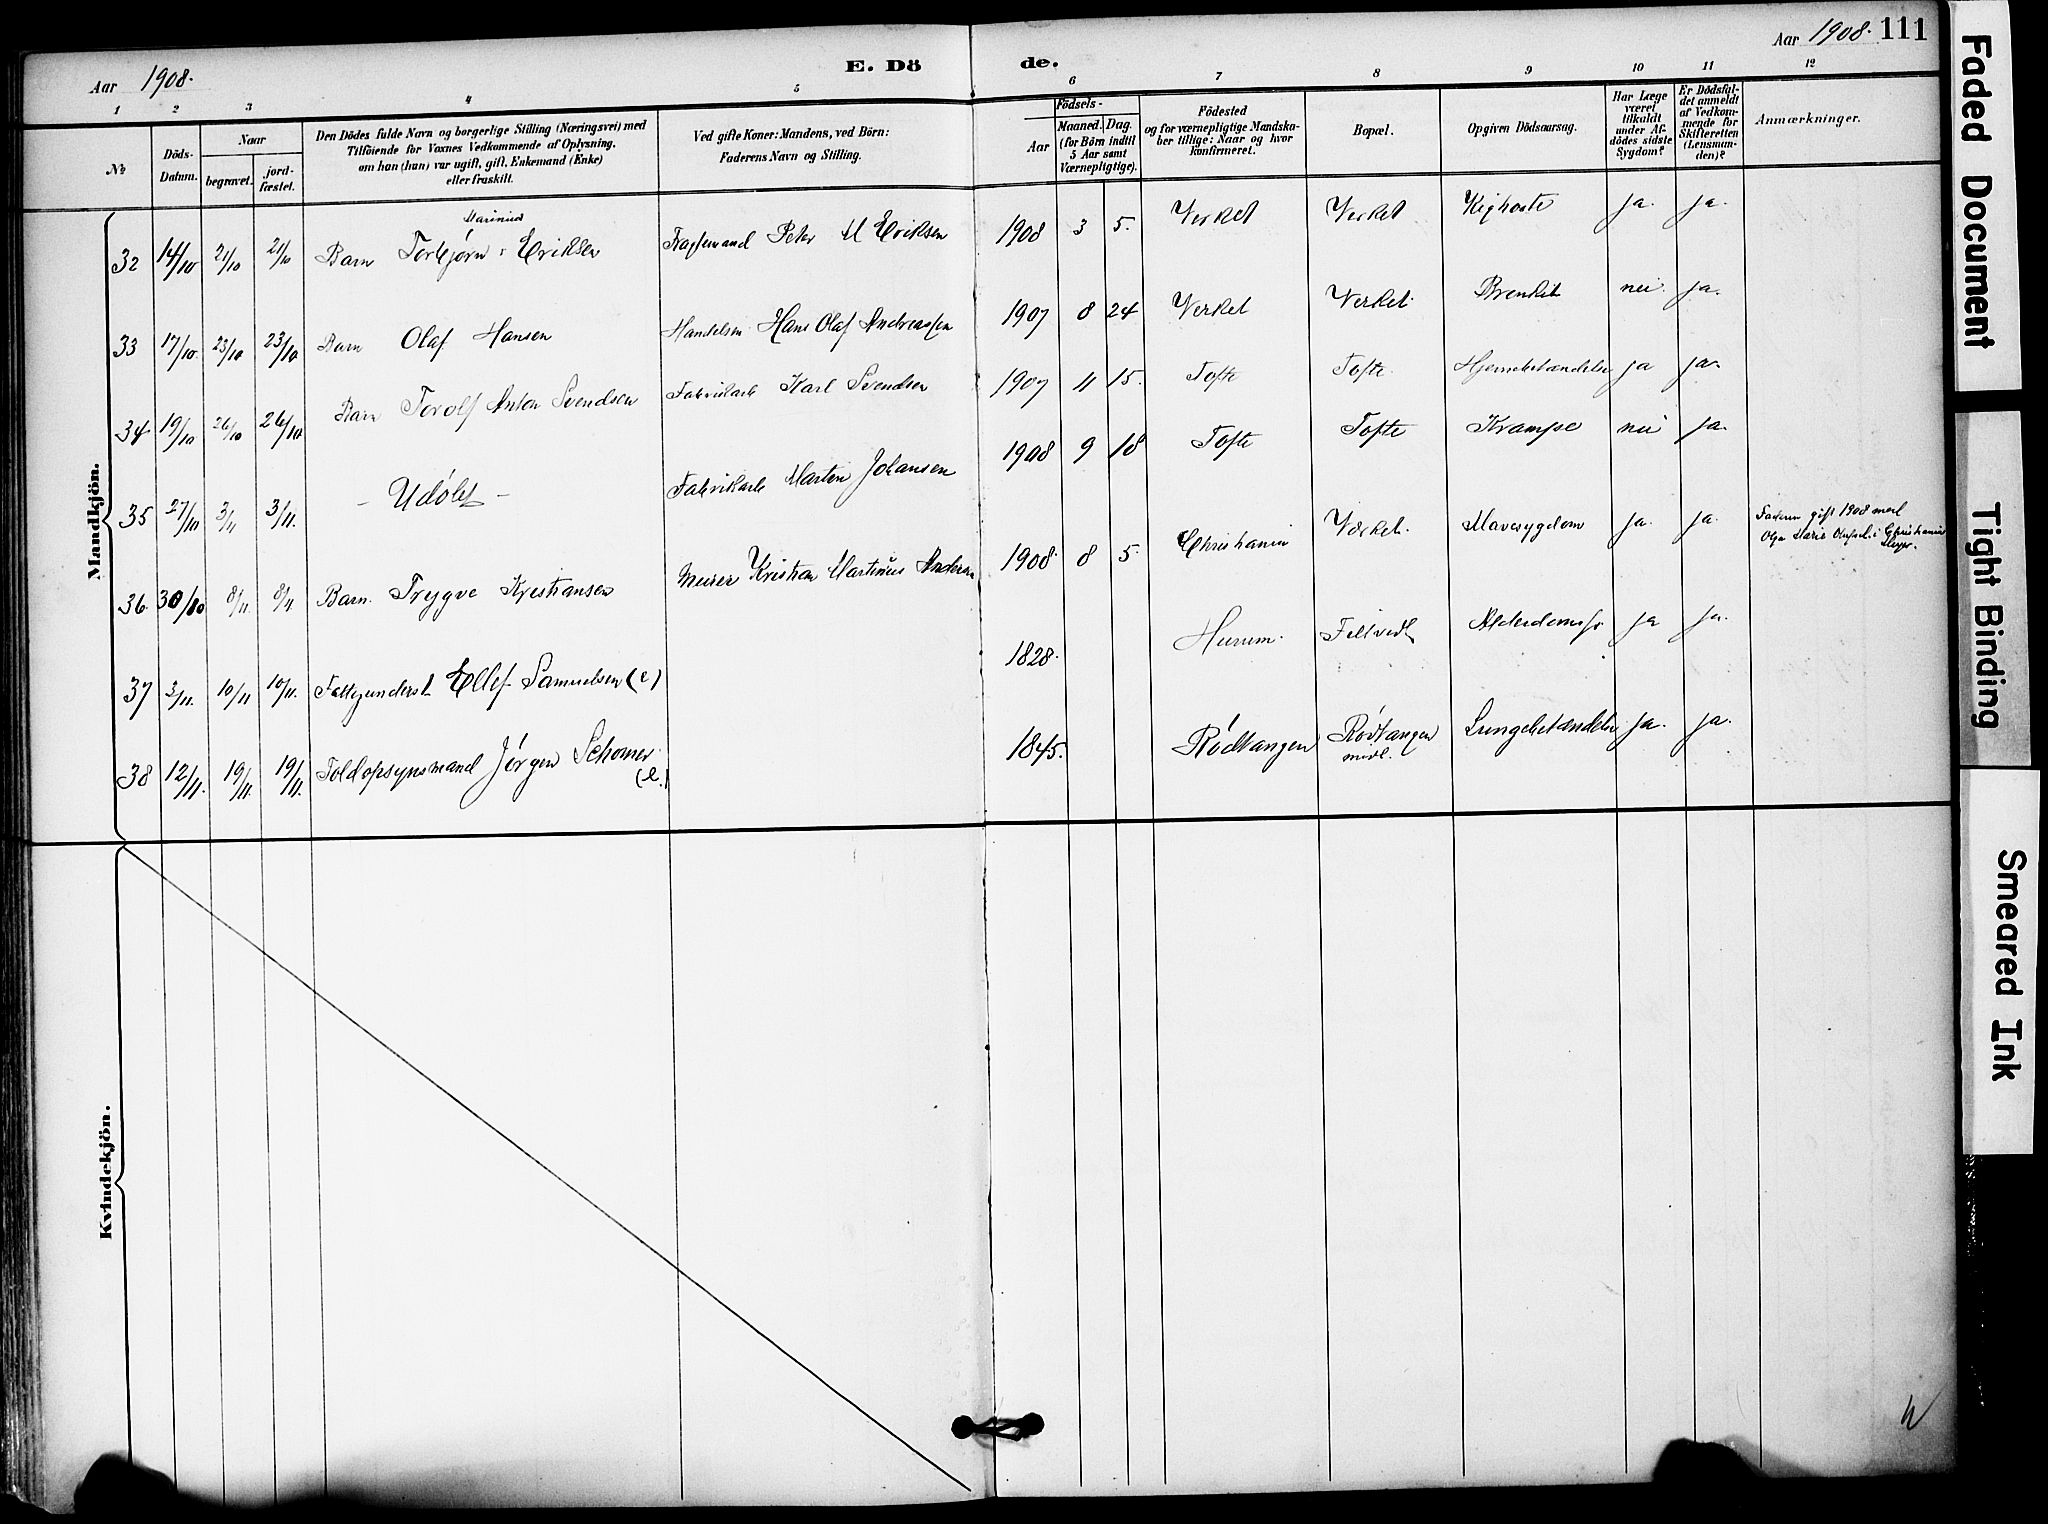 Aar 1908.
E. Dö
de.
Aar 1908. 111
1 2 3 4 5 6 7 8 9 10 11 12
No
Döds-
Datum.
Naar
begravet.
jord-
fæstet.
Den Dödes fulde Navn og borgerlige Stilling (Næringsvei) med
Tilföiende for Voxnes Vedkommende af Oplysning,
om han (hun) var ugift, gift, Enkemand (Enke)
eller fraskilt.
Ved gifte Koner: Mandens, ved Börn:
Faderens Navn og Stilling.
Födsels-
Aar
Maaned. Dag.
(for Börn indtil
5 Aar samt
Værnepligtige).
Födested
og for værnepligtige Mandska-
ber tillige: Naar og hvor
konfirmeret.
Bopæl.
Opgiven Dödsaarsag.
Har Læge
været
tilkaldt
under Af-
dödes sidste
Sygdom?
Er Dödsfal-
det anmeldt
af Vedkom-
mende for
Skifteretten
(Lensman-
den)?
Anmærkninger.
Mandkjön.
Marinius
32 14/10 21/10 21/10 Barn Torbjørn Eriksen Peter M Eriksen 1908 3 5. Verket Verket Kighoste ja. ja.
33 17/10. 23/10 23/10 Barn Olaf Hansen Handelsm Hans Olaf Andreassen 1907 8 24 Verket Verket. Bronkit nei. ja.
34 19/10 26/10 26/10 Barn Torolf Anton Svendsen Fabrikarb Karl Svendsen 1907 11 15. Tofte Tofte. Hjernebetændelse ja ja.
35 27/10 3/11 3/11. - Udøbt - Fabrikarb Martin Johansen 1908 9 18 Tofte Tofte Krampe nei ja.
36. 30/10 8/11. 8/11 Barn. Trygve Kristiansen Murer Kristian Martinius Andersen 1908. 8 5. Christiania Værket. Mavesygdom ja. ja.
Faderen gift 1908 med
Olga Marie Olufsd. i Christiania
37 3/11. 10/11 10/11. Fattigunderst. Ellef Samuelsen (e) 1828. Hurum. Filtvedt Alderdomssv ja ja.
38 12/11. 19/11. 19/11. Toldopsynsmand Jørgen Schomer
(e.)
1845. Rødtangen Rødtangen
midl.
Lungebetændelse ja. ja.
Kvindekjön.
Faded Document
Tight Binding
Smeared Ink